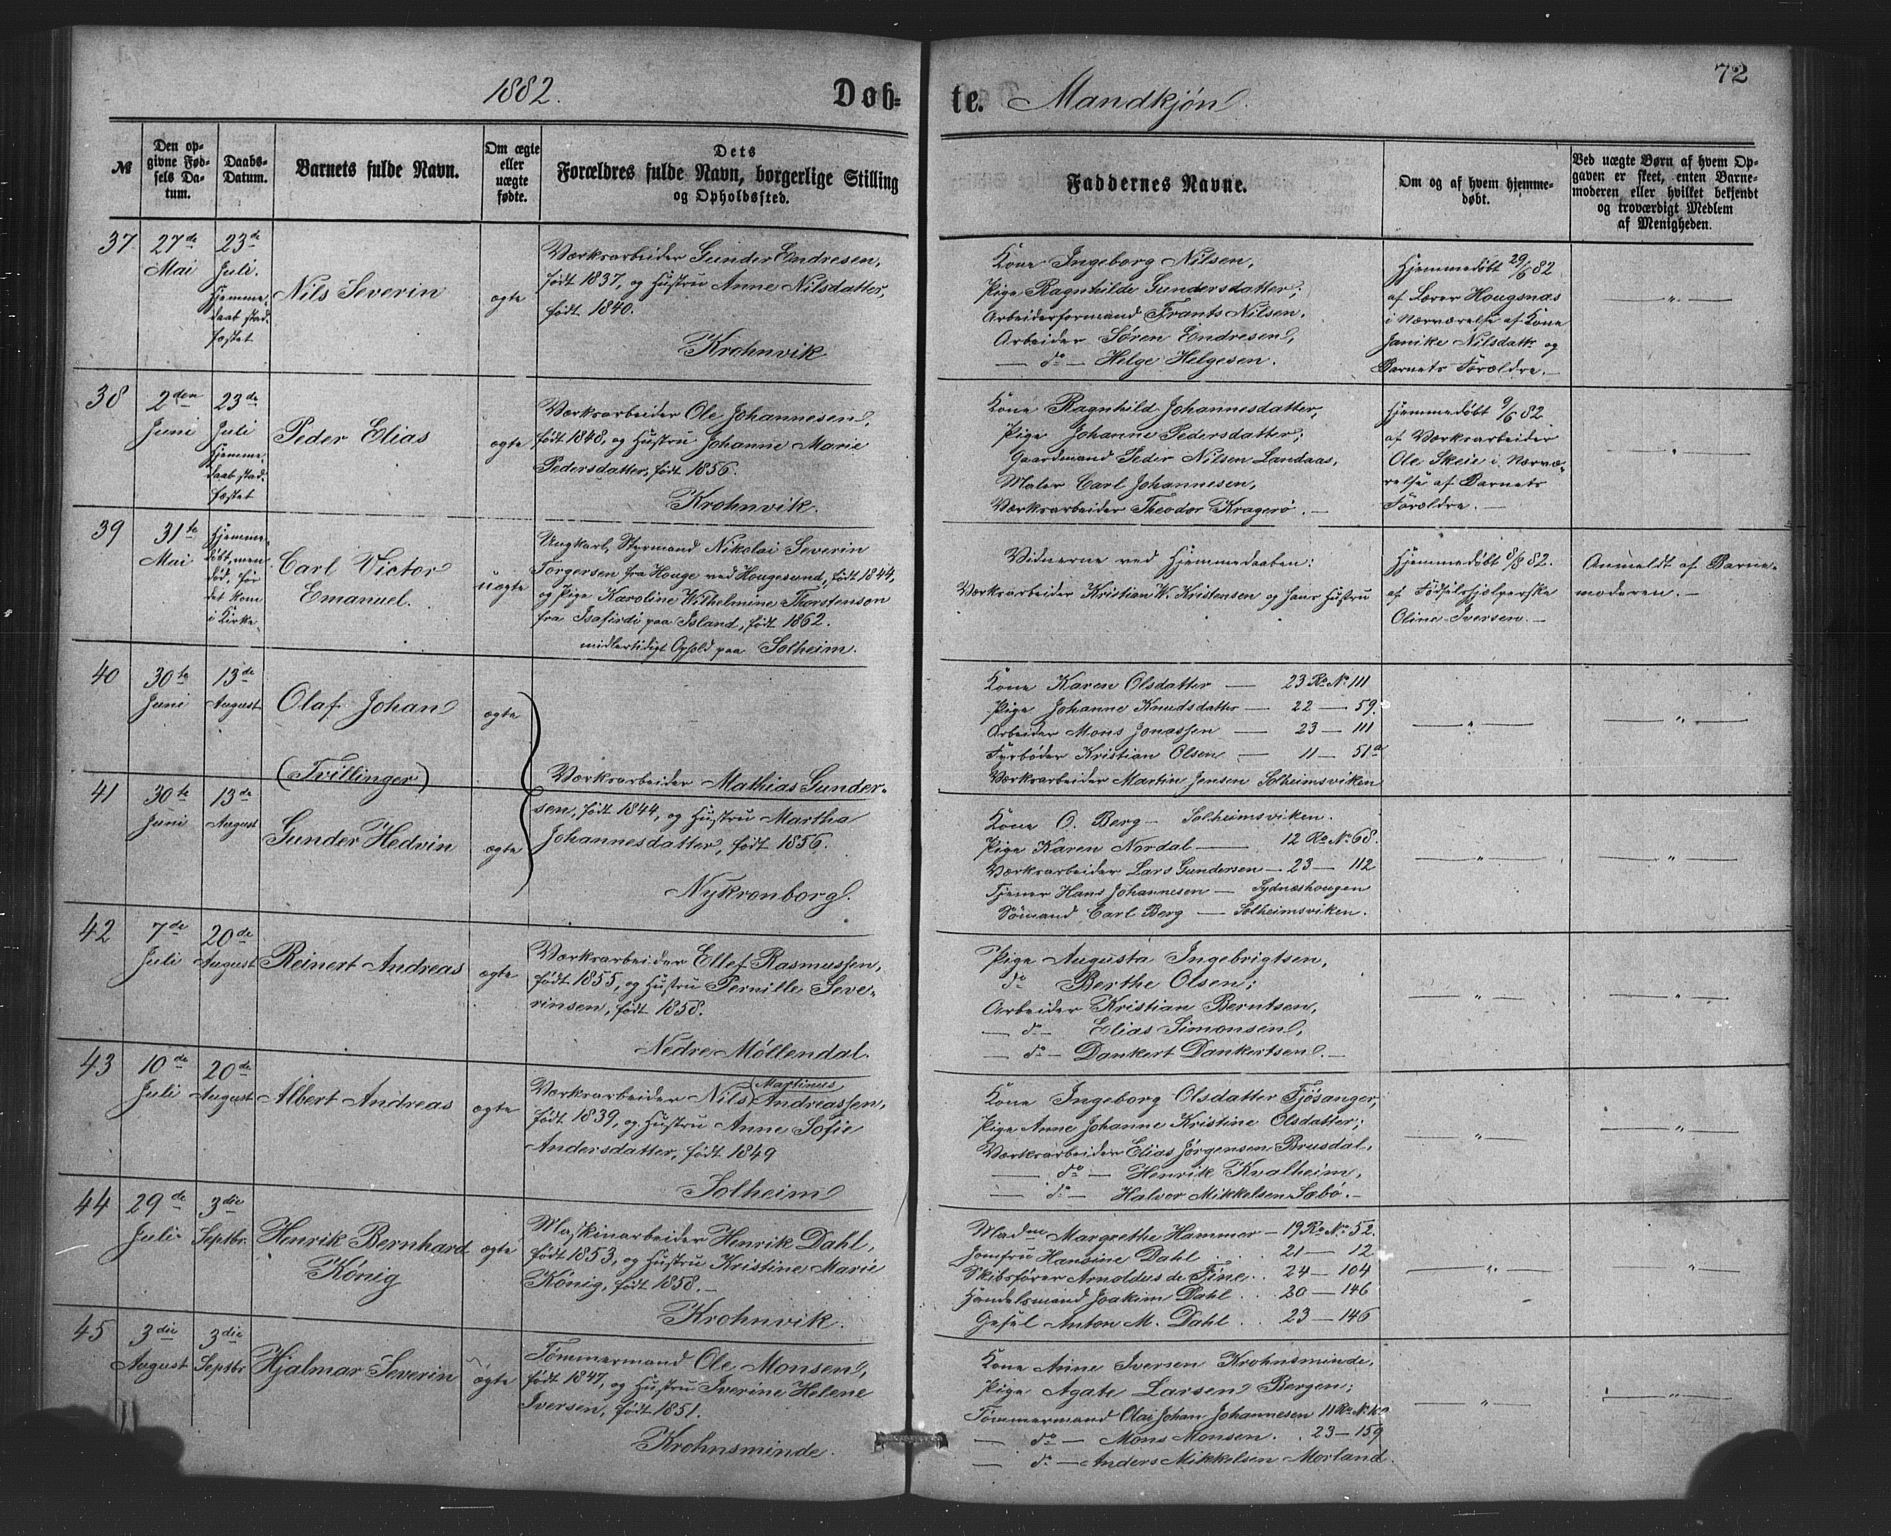 1882.
Døb=
te.
Mandkjøn.
72
№
Den op-
givne Fød-
sels Da-
tum.
Daabs-
Datum.
Barnets fulde Navn.
Om ægte
eller
uægte
fødte.
Dets
Forældres fulde Navn, borgerlige Stilling
og Opholdssted.
Faddernes Navne.
Om og af hvem hjemme-
døbt.
Ved uægte Børn af hvem Op-
gaven er skeet, enten Barne-
moderen eller hvilket bekjendt
og troværdigt Medlem
af Menigheden.
37
27de
Mai
23de
Juli.
Hjemme-
daab stad-
fæstet
Nils Severin
ægte
Værksarbeider Gunder Endresen,
født 1837, og Hustru Anne Nilsdatter,
født 1840.
Krohnvik
Kone Ingeborg Nilsen,
Pige Ragnhilde Gundersdatter;
Arbeiderformand Frants Nilsen,
Arbeider Søren Endresen,
— do — Helge Helgesen.
Hjemmedøbt 29/6 82
af Lærer Hougsnæs
i Nærværelse af Kone
Janike Nilsdatt. og
Barnets Forældre. —
— " —
38
2den
Juni
23de
Juli
Hjemme-
daab stad-
fæstet
Peder Elias
ægte
Værksarbeider Ole Johannesen,
født 1848, og Hustru Johanne Marie
Pedersdatter, født 1856.
Krohnvik.
Kone Ragnhild Johannesdatter,
Pige Johanne Pedersdatter;
Gaardmand Peder Nilsen Landaas,
Maler Carl Johannesen,
Værksarbeider Theodor Kragerø. —
Hjemmedøbt 9/6 82
af Værksarbeider
Ole Skeie i Nærvæ-
relse af Barnets
Forældre. —
— " —
39
31te
Mai
Hjemme-
døbt, men
død, før
det kom
i Kirke.
Carl Victor
Emanuel.
uægte
Ungkarl, Styrmand Nikolai Severin
Torgersen fra Houge ved Hougesund, født 1844,
og Pige Karoline Wilhelmine Thorstenson
fra Isafirdi paa Island, født 1862.
midlertidigt Ophold paa Solheim.
Vidnerne ved Hjemmedaaben:
Værksarbeider Kristian W. Kristensen og hans Hustru
Hjemmedøbt 6/8 82.
af Fødselshjelperske
Oline Iversen. —
Anmeldt af Barne-
moderen. —
40
30te
Juni
13de
August
Olaf Johan
ægte
Kone Karen Olsdatter — 23 Ro No 111
Pige Johanne Knudsdatter — 22 — 59.
Arbeider Mons Jonassen — 23 — 111
Fyrbøder Kristian Olsen — 11 — 51a
Værksarbeider Martin Jensen Solheimsviken
— " —
— " —
(Tvillinger)
41
30te
Juni
13de
August
Gunder Hedvin
ægte
Værksarbeider Mathias Gunder-
sen, født 1844, og Hustru Martha
Johannesdatter, født 1856.
Nykronborg.
Kone O. Berg — Solheimsviken.
Pige Karen Nordal — 12 Ro No 68.
Værksarbeider Lars Gundersen — 23 — 112
Tjener Hans Johannesen — Sydneshougen
Sømand Carl Berg — Solheimsviken.
— " —
— " —
42
7de
Juli
20de
August
Reinert Andreas
ægte
Værksarbeider Ellef Rasmussen,
født 1855, og Hustru Pernille Seve-
rinsen, født 1858.
Nedre Møllendal.
Pige Augusta Ingebrigtsen,
do Berthe Olsen;
Arbeider Kristian Berntsen,
— do — Elias Simonsen,
— do — Dankert Dankertsen. —
— " —
— " —
43
10de
Juli
20de
August
Albert Andreas
ægte
Værksarbeider Nils (Martinus
Andreassen,
født 1839, og Hustru Anne Sofie
Andersdatter, født 1849
Solheim
Kone Ingeborg Olsdatter Fjøsanger,
Pige Anne Johanne Kristine Olsdatter;
Værksarbeider Elias Jørgensen Brusdal,
— do — Henrik Kvalheim,
— do — Halvor Mikkelsen Sæbø. —
— " —
— " —
44
29de
Juli
3die
Septbr.
Henrik Bernhard
König
ægte
Maskinarbeider Henrik Dahl,
født 1853, og Hustru Kristine Marie
König, født 1858. —
Krohnvik.
Madme Margrethe Hammer — 19 Ro No 52.
Jomfru Hansine Dahl . 21 — 12
Skibsfører Arnoldus de Fine . . 24 — 104
Handelsmand Joakim Dahl . . 20 — 146
Gesel Anton M. Dahl . . 23 — 146
— " —
— " —
45
3die
August
3die
Septbr
Hjalmar Severin
ægte
Tømmermand Ole Monsen,
født 1847, og Hustru Iverine Helene
Iversen, født 1851.
Krohnsminde.
Kone Anne Iversen Krohnsminde,
Pige Agate Larsen Bergen;
Tømmermand Olai Johan Johannesen 11 Ro No
— do — Mons Monsen. . 23 — 159
— do — Anders Mikkelsen Morland.
— " —
— " —